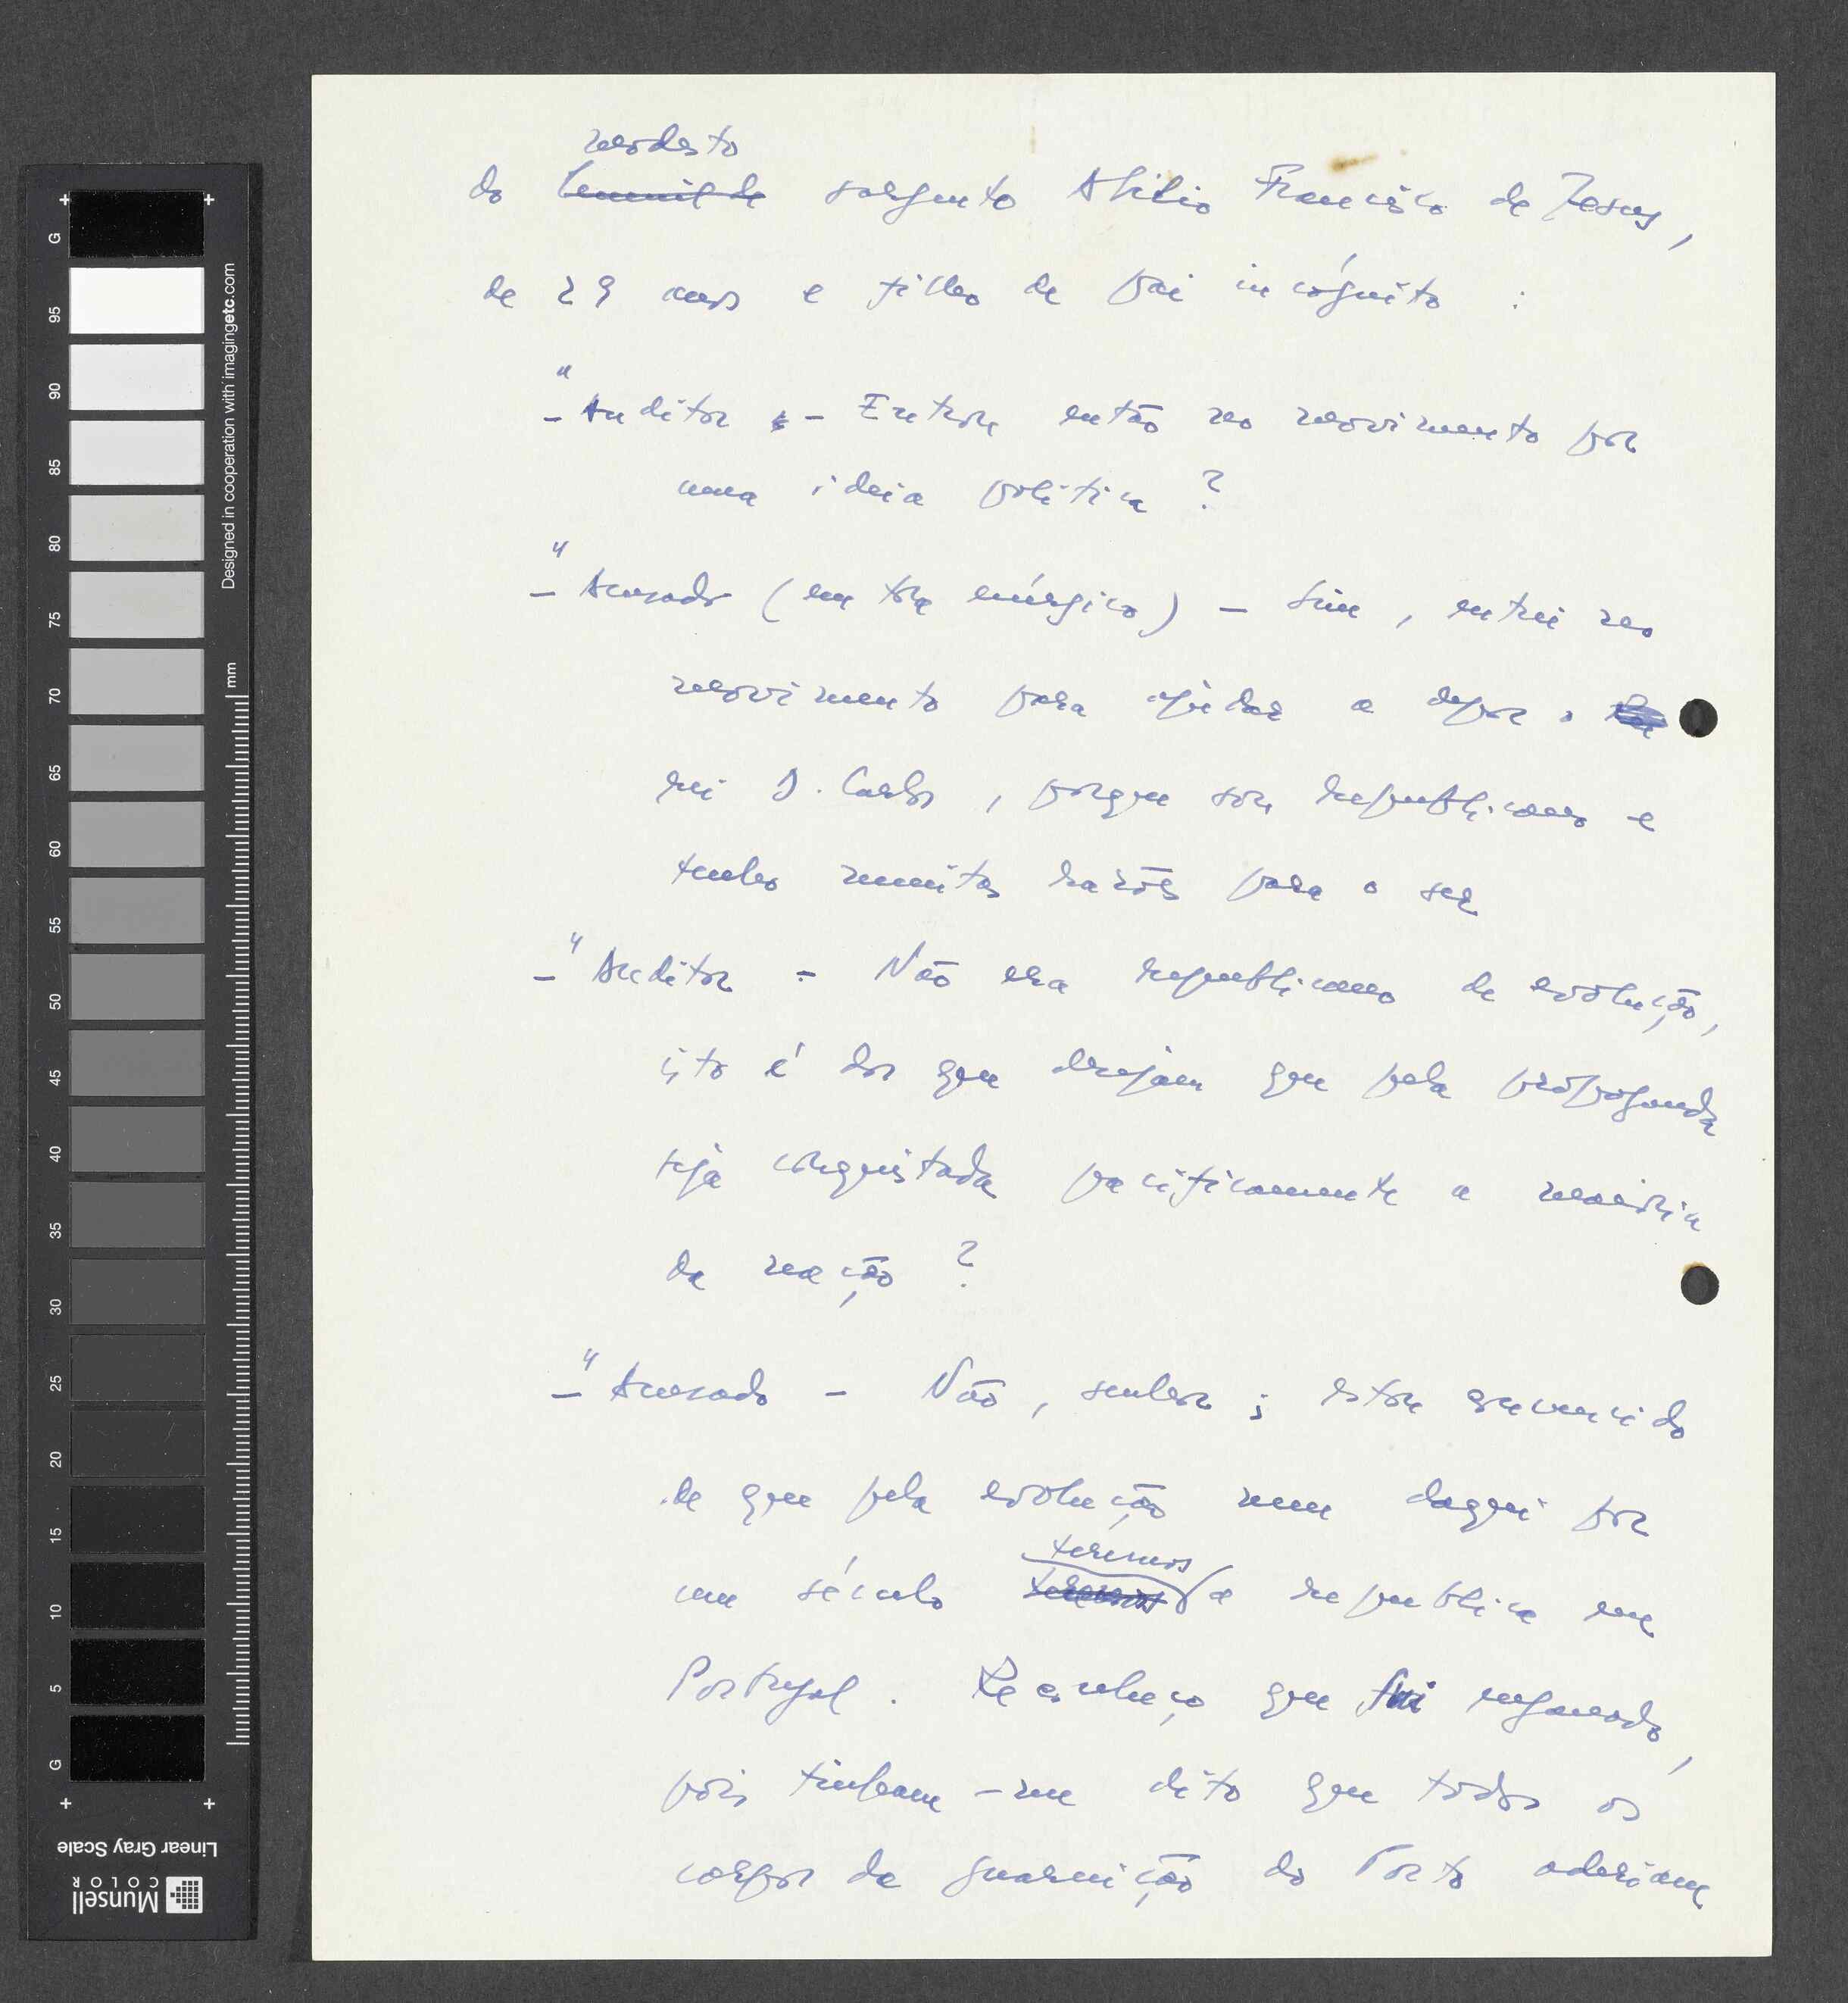 modesto
do humilde sargento Abilio Francisco de Jesus,
de 29 anos e filho de pai incógnito :
"
- Auditor - Entrou então no movimento por
uma ideia politica ?
-" Acusado (em tom enérgico) - Sim, entrei no
movimento para ajudar a depor o
rei D. Carlos, porque sou republicano e
tenho muitas razões para o ser
-" Auditor - Não era republicano de evolução,
isto é dos que desejam que pela propaganda
seja conquistada pacificamente a maioria
da nação ?
-" Acusado - Não, senhor ; estou convencido
de que pela evolução nem daqui por
teremos
um século teremos a republica em
Portugal. Reconheço que fui enganado,
pois tinham-me dito que todos os
corpos da guarnição do Porto aderiam
G
95
90
85
80
75
70
65
60
55
50
45
40
35
30
25
20
15
10
5
G
mm
Designed in cooperation with imagingetc.com
Linear Gray Scale
Munsell
COLOR